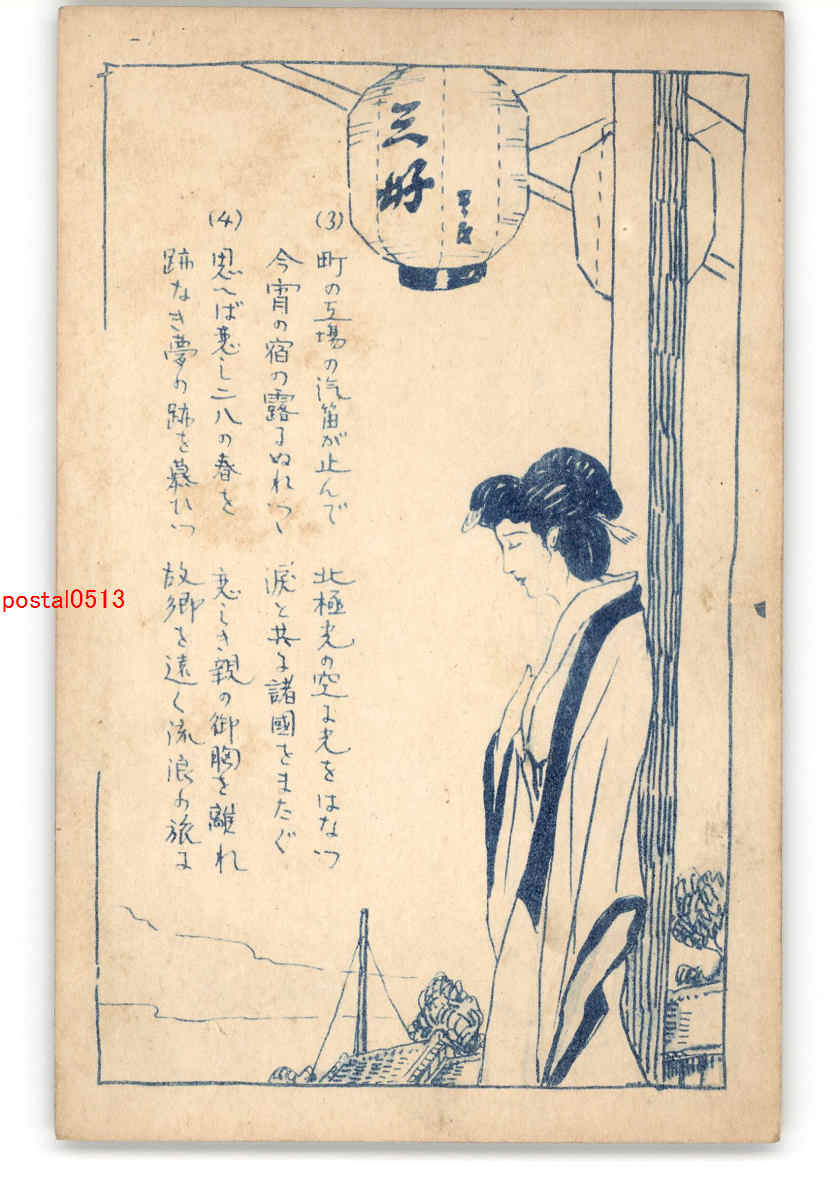 三好
(3) 町の工場の汽笛が止んで 北極光の空に光をはなつ
今宵の宿の露にぬれつゝ 涙と共に諸國をまたぐ
(4) 思へば悲し二八の春を 悲しき親の御胸を離れ
跡なき夢の跡を慕ひつ 故郷を遠く流浪の旅に
postal0513